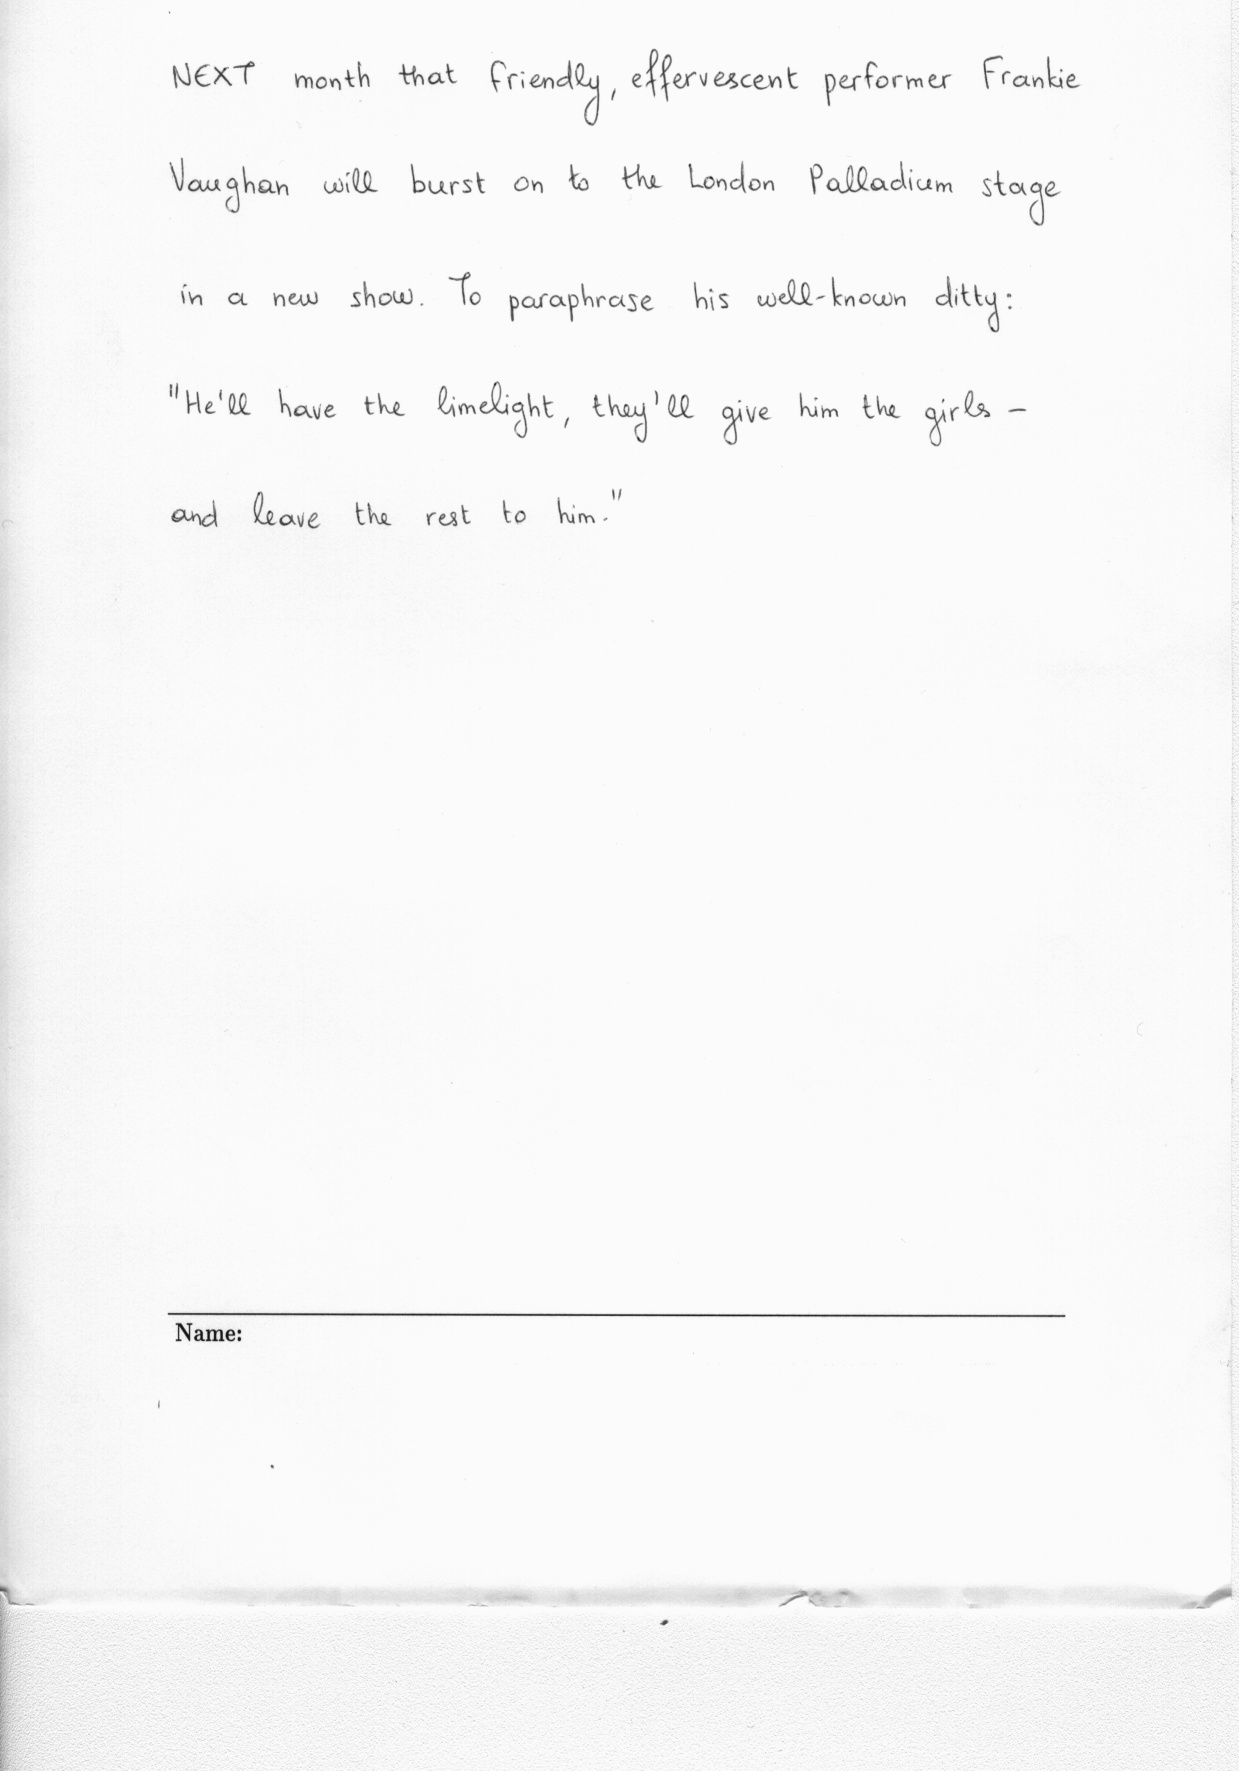 NEXT month that friendly, effervescent performer Frankie
Vaughan will burst on to the London Palladium stage
in a new show. To paraphrase his well-known ditty:
"He'll have the limelight, they'll give him the girls -
and leave the rest to him."
Name: